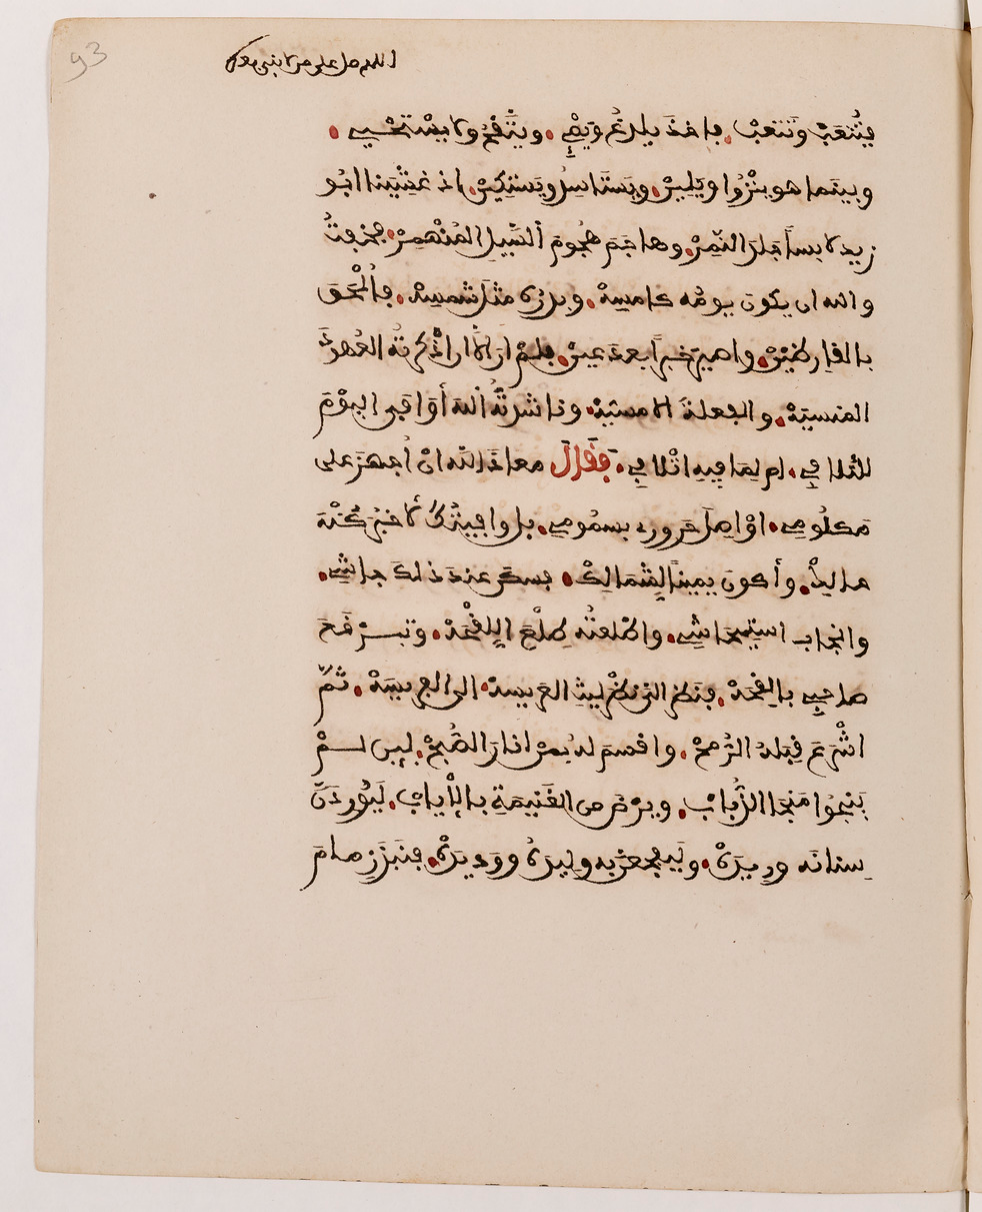 93
اللهم صل على من لا نبي بعده
فَتُتْعَبْ وَتَتْعَبْ. فاخذ يلدغُ وَيَصْءِي. ويتَّقِحُ ولا يستحيي.
وبينما هو ينْزُوا ويَلِينْ. ويَستَاسِدُ ويَستكينْ. اذ غشِيَنا ابُو
زيد لابساً جلدَ النَّمِرْ. وهاجِم هُجُومَ السَّيلِ المُنْهمِرْ. فخِفتُ
والله ان يكون يومُه كامسِهْ. وبدرُهُ مثلَ شمسِهْ. فأُلْحَقَ
بالقارِظَيْنْ. واصيرَ خبراً بعدَ عينْ. فلمْ ارَ الَّا ان اذْكَرْتُه العُهودَ
المنسيّهْ. والفعلةَ الامسيّهْ. وناشدتُّه اللهَ أوَافى اليوْمَ
للتلافي. ام لِما فيه اتْلافي. فقال معاذ الله ان أجهزَ على
مَكلُومي. اوْ اصلَ حَرورِي بسمُومي. بل وافيتُكَ لأخبُرَ كُنْهَ
حالِكْ. وأكون يميناً لِشمالِكْ. فسكن عند ذلك جاشي.
وانجاب استيحاشي. واطْلعتُه طِلْعَ اللِقْحَهْ. وتبرقعَ
صاحبي بالقِحَهْ. فنظر اليه نظرَ ليثِ العريسهْ. الى الفريسَهْ. ثمّ
اشْرعَ قِبلَهُ الرُّمحْ. واقسم له بمنْ انارَ الصُّبحْ. لين لمْ
يَنجُوا مَنجَا الذُّبابْ. ويرْضَ من الغَنيمَةِ بالإيابْ. ليُورِدَنَّ
سنانَه ورِيدَهْ. وليفجعنَّ به وليدَهُ ووديدَهْ. فنبذ زِمامَ